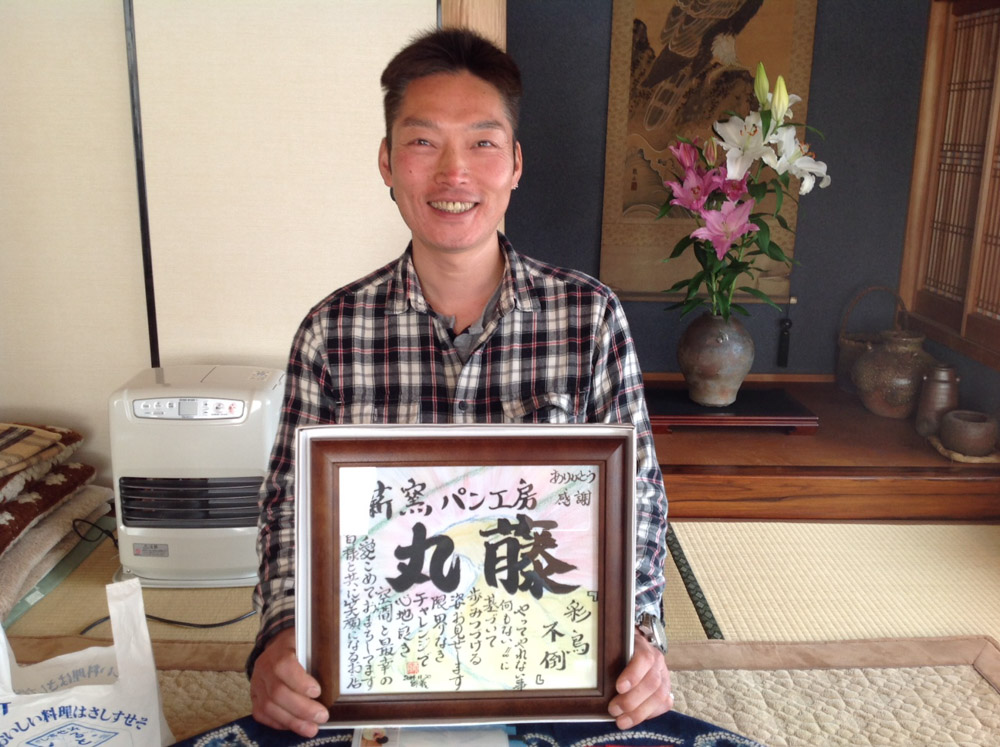 ありがとう
感謝
薪窯パン工房
丸藤
『彩鳥
不倒』
やってやれない事
何もない!!に
基づいて
歩みつづける
姿お見せします
限界なき
チャレンジで
心地良き
空間と最幸の
愛こめておまちしてます
皆様と共に笑顔になるお店
おいしい料理はさしすせそ